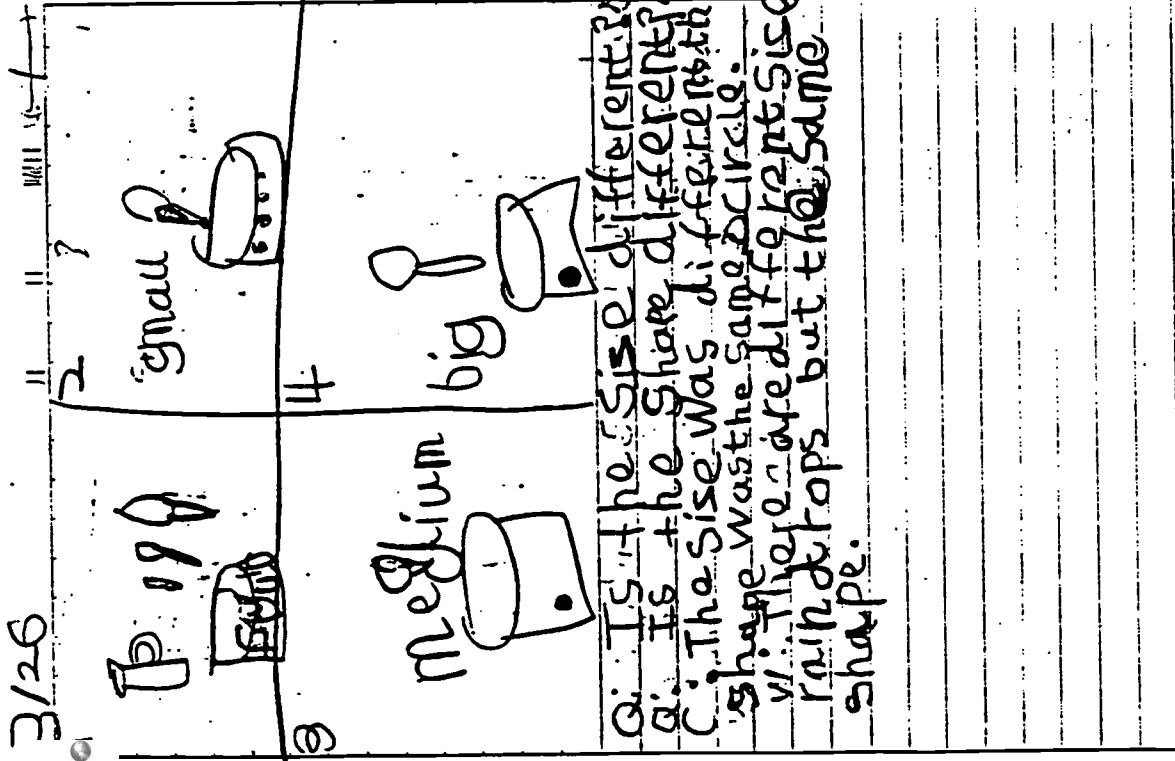 3/26
2
small
3
medium
4
big
Q. Is the Sise different?
Q. Is the Shape different?
C. Tha Sise was different th
shape was the same circle.
W. There are different Sise
raindrops but the same
shape.